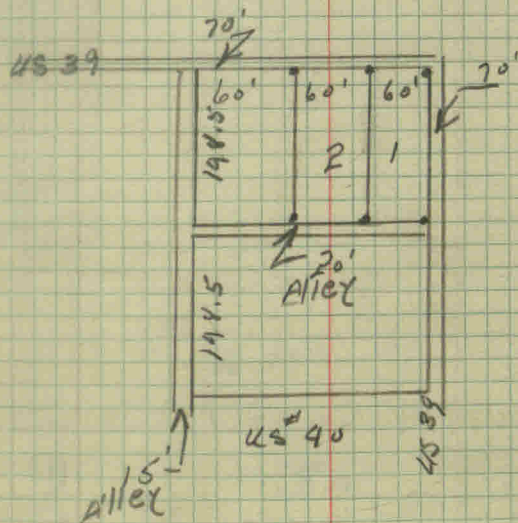 70'
US 39
60' 60' 60'
70'
198.5
2 1
20'
Alley
198.5
US # 40
US 39
15'
Alley